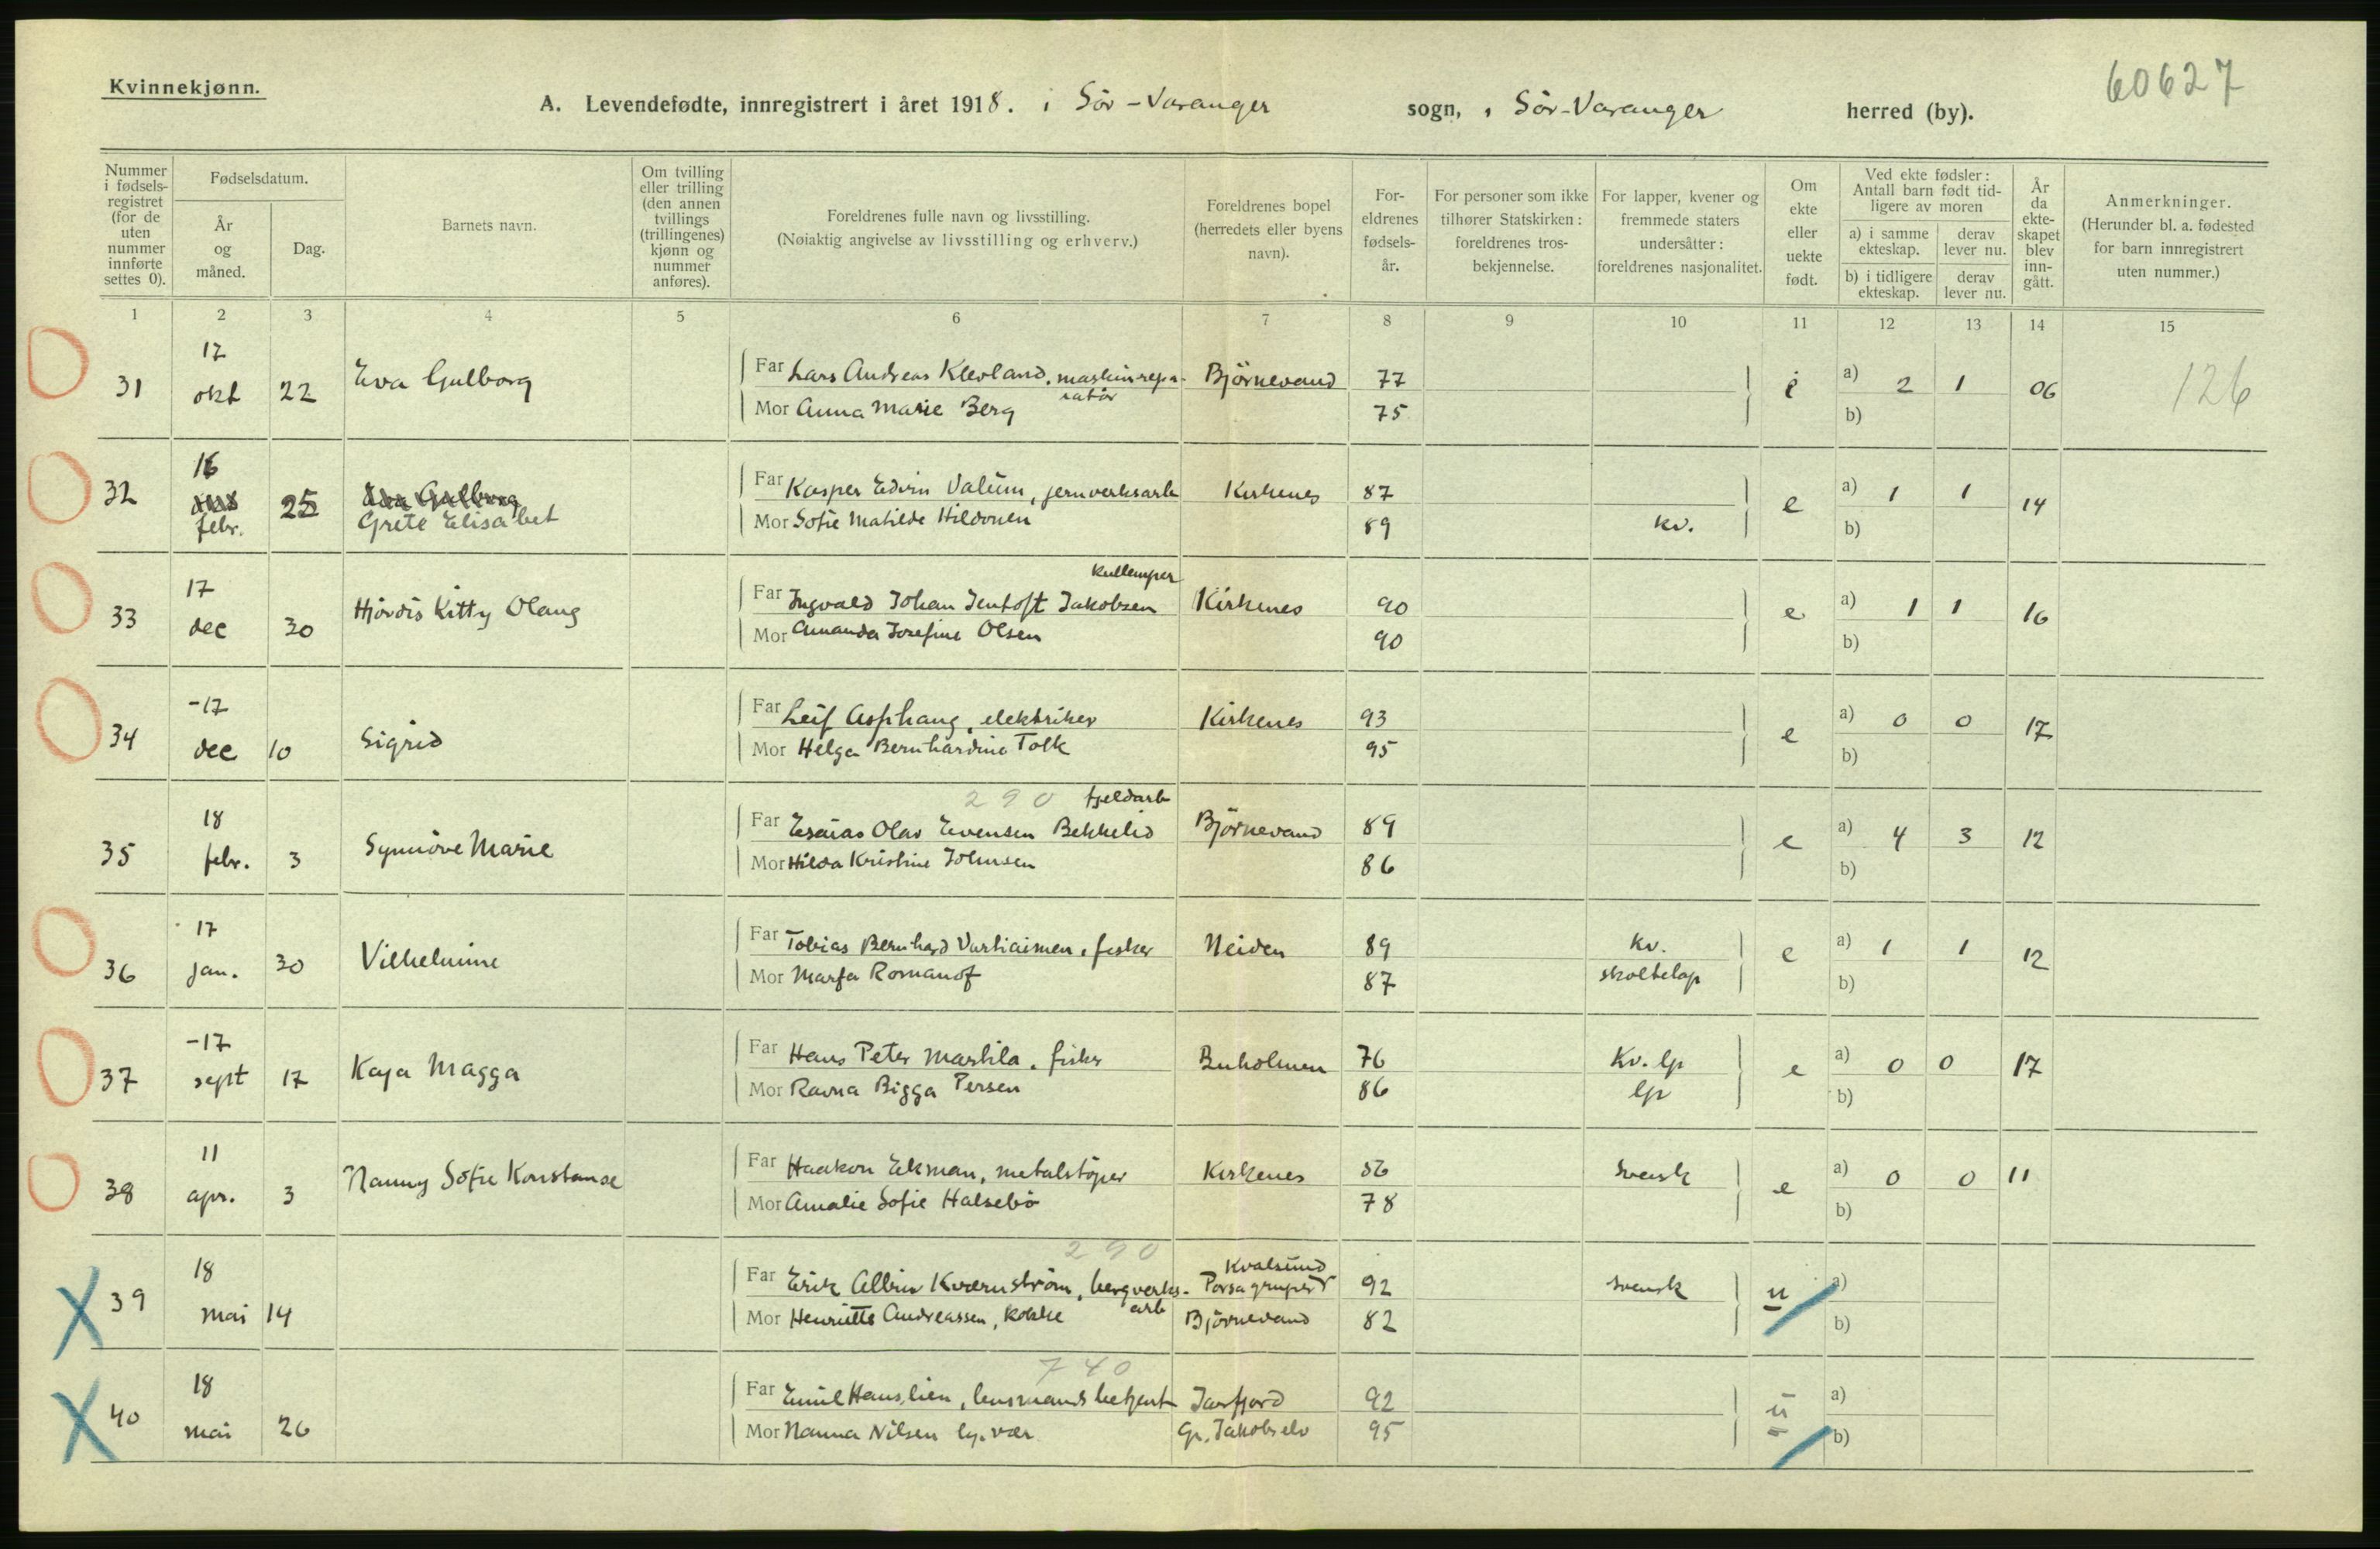 60627
Kvinnekjønn.
A. Levendefødte, innregistrert i året 1918. i Sör-Varanger sogn, i Sör-Varanger herred (by).
Nummer i fødselsregistret (for de uten nummer innførte settes 0).
Fødselsdatum.
År og måned.
Dag.
Barnets navn.
Om tvilling eller trilling (den annen tvillings (trillingenes) kjønn og nummer anføres).
Foreldrenes fulle navn og livsstilling.
(Nøiaktig angivelse av livsstilling og erhverv.)
Foreldrenes bopel (herredets eller byens navn).
Foreldrenes fødselsår.
For personer som ikke tilhører Statskirken: foreldrenes trosbekjennelse.
For lapper, kvener og fremmede staters undersåtter: foreldrenes nasjonalitet.
Om ekte eller uekte født.
Ved ekte fødsler: Antall barn født tidligere av moren
a) i samme ekteskap.
derav lever nu.
b) i tidligere ekteskap.
derav lever nu.
År da ekteskapet blev inngått.
Anmerkninger.
(Herunder bl. a. fødested for barn innregistrert uten nummer.)
1 2 3 4 5 6 7 8 9 10 11 12 13 14 15
31 17 okt 22 Eva Gulborg
Far Lars Andreas Klevland, maskinreparatör Björnevand 77 a) 2 1 06 126
Mor Anna Marie Berg 75 b)
32 16 febr. 25 Eva Gulborg
Grete Elisabet
Far Kasper Edvin Valüm, jernverksarb Kirkenes 87 e a) 1 1 14
Mor Sofie Matilde Hildonen 89 kv. b)
33 17 dec 30 Hjördis Kitty Olaug
kullemper
Far Ingvald Johan Jentoft Jakobsen Kirkenes 90 e a) 1 1 16
Mor Amanda Josefine Olsen 90 b)
34 -17 dec 10 Sigrid
Far Leif Asphaug, elektriker Kirkenes 93 e a) 0 0 17
Mor Helga Bernhardine Tolk 95 b)
290 fjeldarb
35 18 febr. 3 Synnöve Marie
Far Esaias Olav Evensen Bekkelid Björnevand 89 e a) 4 3 12
Mor Hilda Kristine Johnsen 86 b)
36 17 jan. 30 Vilhelmine
Far Tobias Bernhard Vartiainen, fisker Neiden 89 kv. e a) 1 1 12
Mor Marfa Romanof 87 skoltelap b)
37 -17 sept 17 Kaja Magga
Far Hans Peter Martila, fisker Buholmen 76 Kv. lp e a) 0 0 17
Mor Ravna Bigga Persen 86 lp b)
38 11 apr. 3 Nanny Sofie Konstanse
Far Haakon Ekman, metalstöper Kirkenes 86 svensk e a) 0 0 11
Mor Amalie Sofie Halsebö 78 b)
290
39 18 mai 14
Far Erik Albin Kvernström, bergverksarb Kvalsund Porsa gruper 92 svensk u a)
Mor Henriette Andreassen, kokke Björnevand 82 b)
740
40 18 mai 26
Far Emil Hans. lien, lensmandsbetjent Jarfjord 92 u a)
Mor Nanna Nilsen Gr. Jakobselv 95 b)